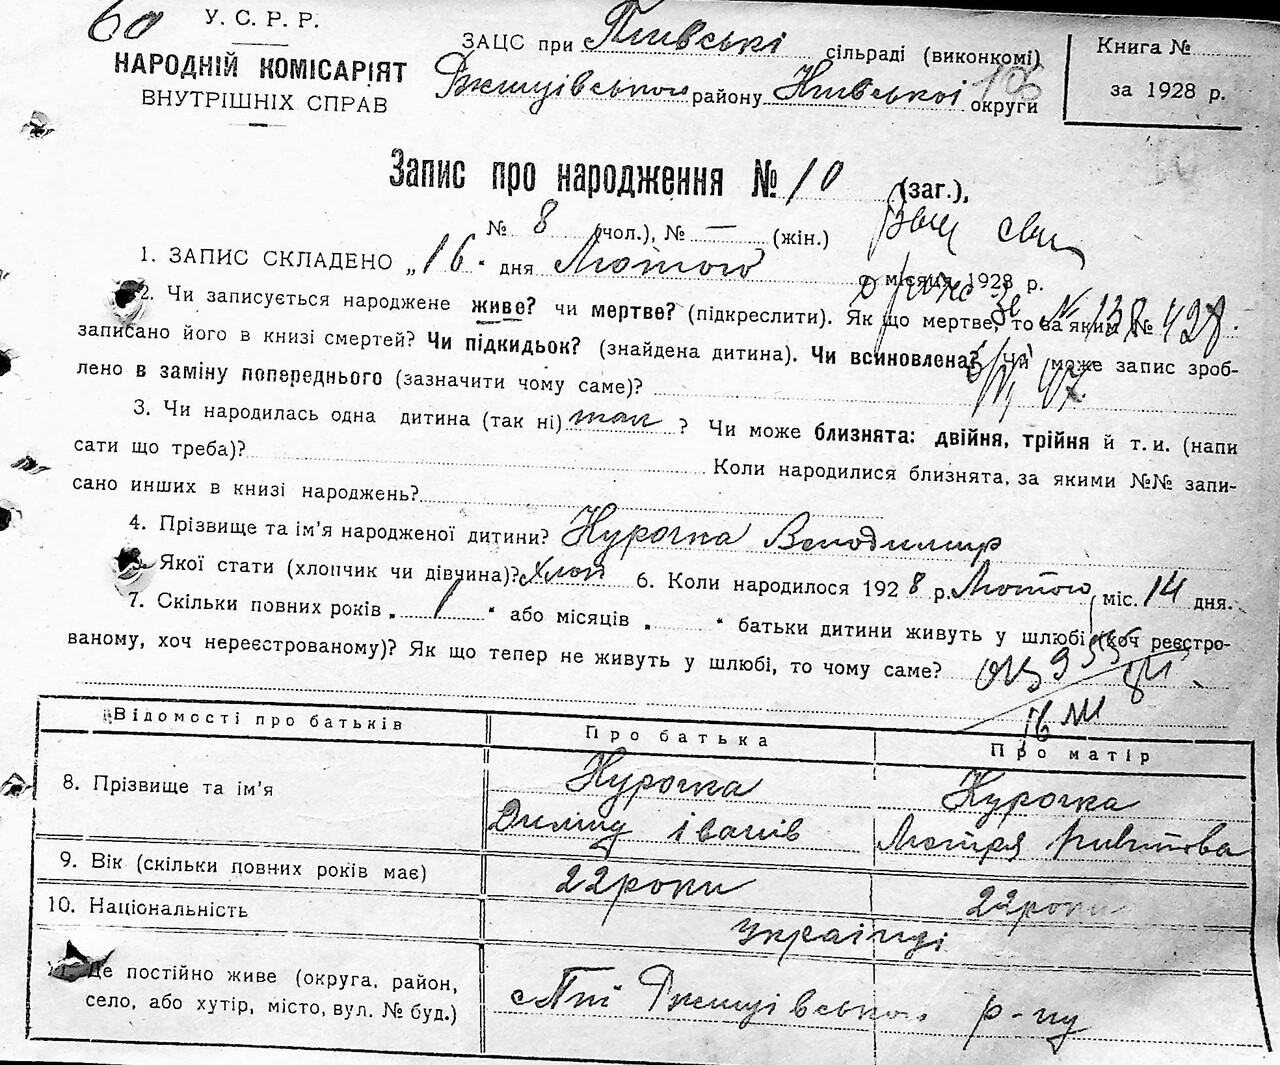 60
У. С. Р. Р.
НАРОДНІЙ КОМІСАРІЯТ
ВНУТРІШНІХ СПРАВ
ЗАЦС при Пиївські сільраді (виконкомі)
Ржищівського району Київської округи
106
Книга №
за 1928 р.
Запис про народження № 10 (заг.),
№ 8 (чол.), № — (жін.)
1. ЗАПИС СКЛАДЕНО „16“ дня Лютого місяця 1928 р.
2. Чи записується народжене живе? чи мертве? (підкреслити). Як що мертве, то за яким №
записано його в книзі смертей? Чи підкидьок? (знайдена дитина). Чи всиновлена? Чи може запис зроб-
лено в заміну попереднього (зазначити чому саме)?
3. Чи народилась одна дитина (так ні) так ? Чи може близнята: двійня, трійня й т. и. (напи
сати що треба)? Коли народилися близнята, за якими №№ запи-
сано инших в книзі народжень?
4. Прізвище та ім'я народженої дитини? Курочка Володимир
Якої стати (хлопчик чи дівчина)? Хлоп 6. Коли народилося 1928 р. Лютого міс. 14 дня.
7. Скільки повних років „ 1 “ або місяців „ “ батьки дитини живуть у шлюбі (хоч реєстро-
ваному, хоч нереєстрованому)? Як що тепер не живуть у шлюбі, то чому саме?
Відомості про батьків
Про батька
Про матір
8. Прізвище та ім'я
Курочка
Демид Іванів
Курочка
Мотря
9. Вік (скільки повних років має)
22 роки
22 роки
10. Національність
Українці
11. Де постійно живе (округа, район,
село, або хутір, місто, вул. № буд.)
с Пиї Ржищівського р-ну